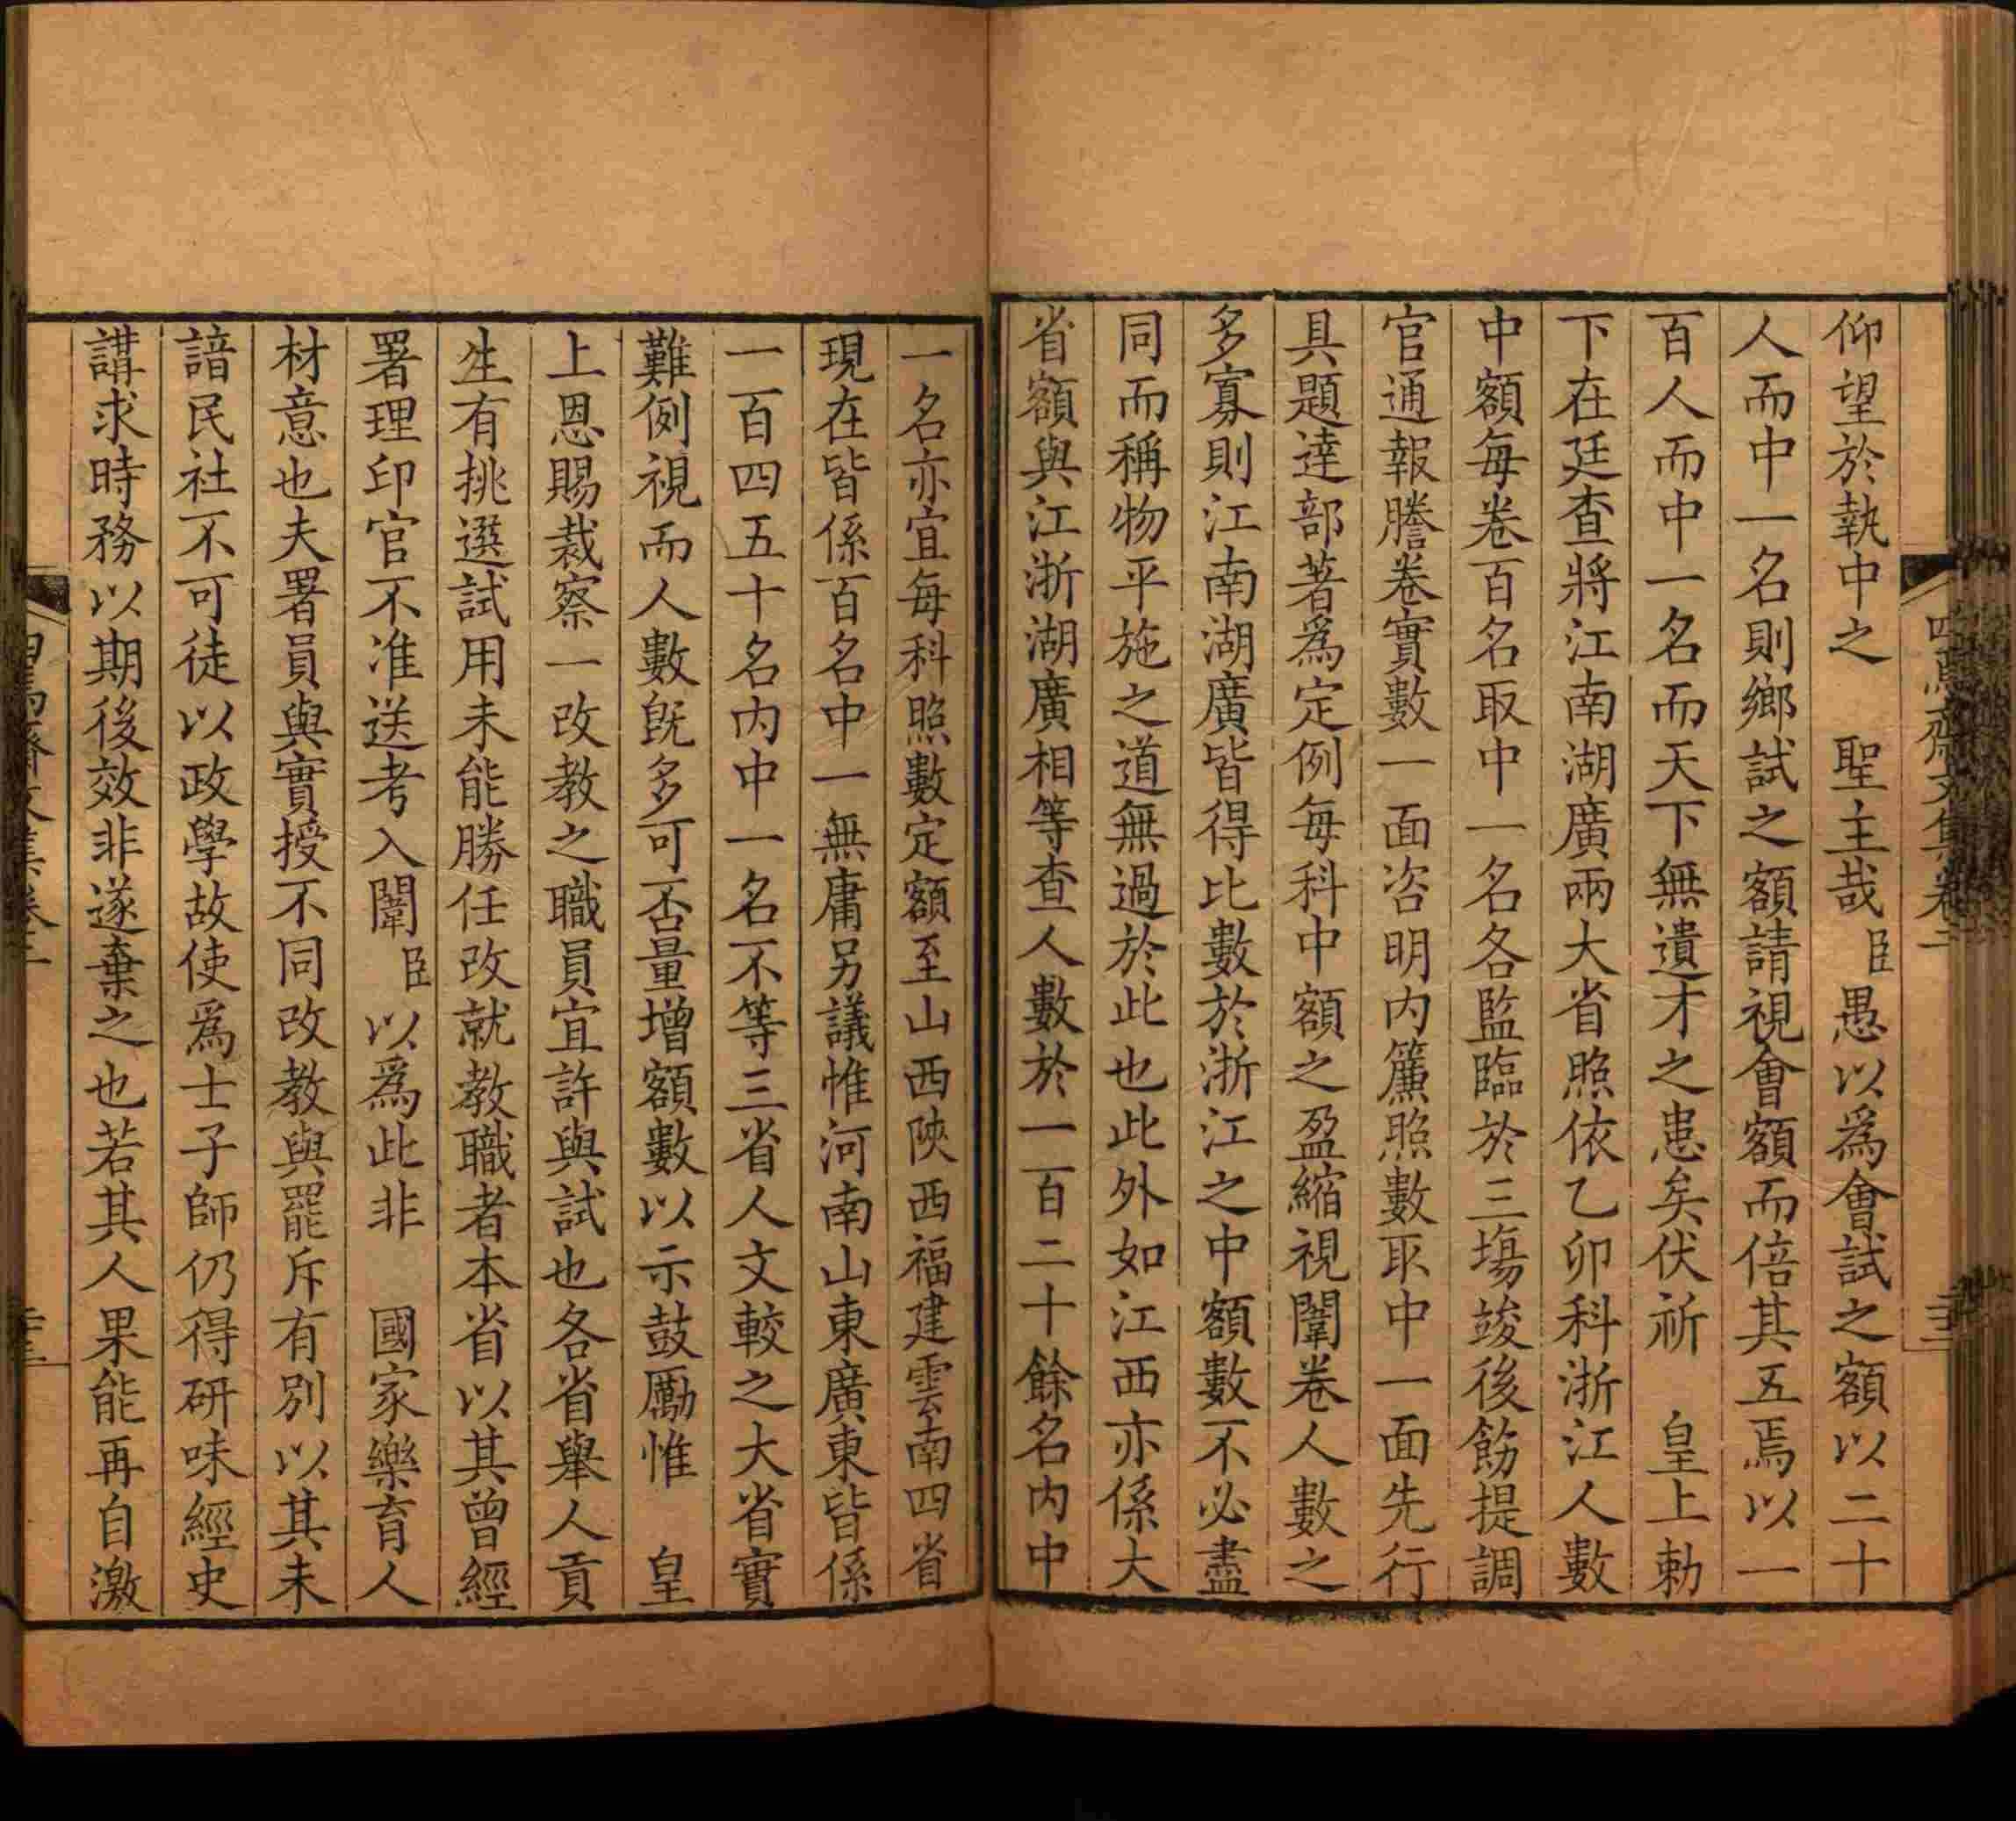 仰望於執中之　聖主哉臣愚以爲會試之額以二十
人而中一名則鄉試之額請視會額而倍其五焉以一
百人而中一名而天下無遺才之患矣伏祈　皇上勅
下在廷查將江南湖廣兩大省照依乙卯科浙江人數
中額每卷百名取中一名各監臨於三塲竣後飭提調
官通報謄卷實數一面咨明內簾照數取中一面先行
具題達部著爲定例每科中額之盈縮視闈卷人數之
多寡則江南湖廣皆得比數於浙江之中額數不必盡
同而稱物平施之道無過於此也此外如江西亦係大
省額與江浙湖廣相等查人數於一百二十餘名內中
一名亦宜每科照數定額至山西陝西福建雲南四省
現在皆係百名中一無庸另議惟河南山東廣東皆係
一百四五十名內中一名不等三省人文較之大省實
難例視而人數旣多可否量增額數以示鼓勵惟　皇
上恩賜裁察一改教之職員宜許與試也各省舉人貢
生有挑選試用未能勝任改就教職者本省以其曾經
署理印官不准送考入闈臣以爲此非　國家樂育人
材意也夫署員與實授不同改教與罷斥有別以其未
諳民社不可徒以政學故使爲士子師仍得研味經史
講求時務以期後效非遂棄之也若其人果能再自激